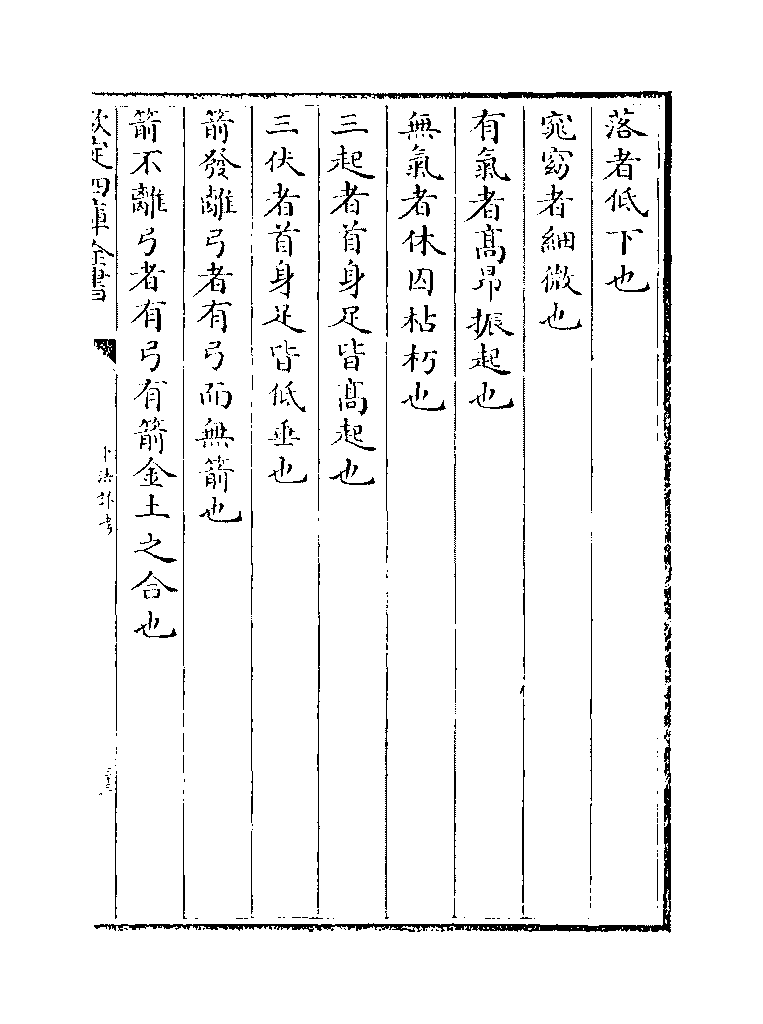 落者低下也
窕窈者細微也
有氣者髙昂振起也
無氣者休囚枯朽也
三起者首身足皆髙起也
三伏者首身足皆低垂也
箭發離弓者有弓而無箭也
箭不離弓者有弓有箭金土之合也
欽定四庫全書
卜法詳考